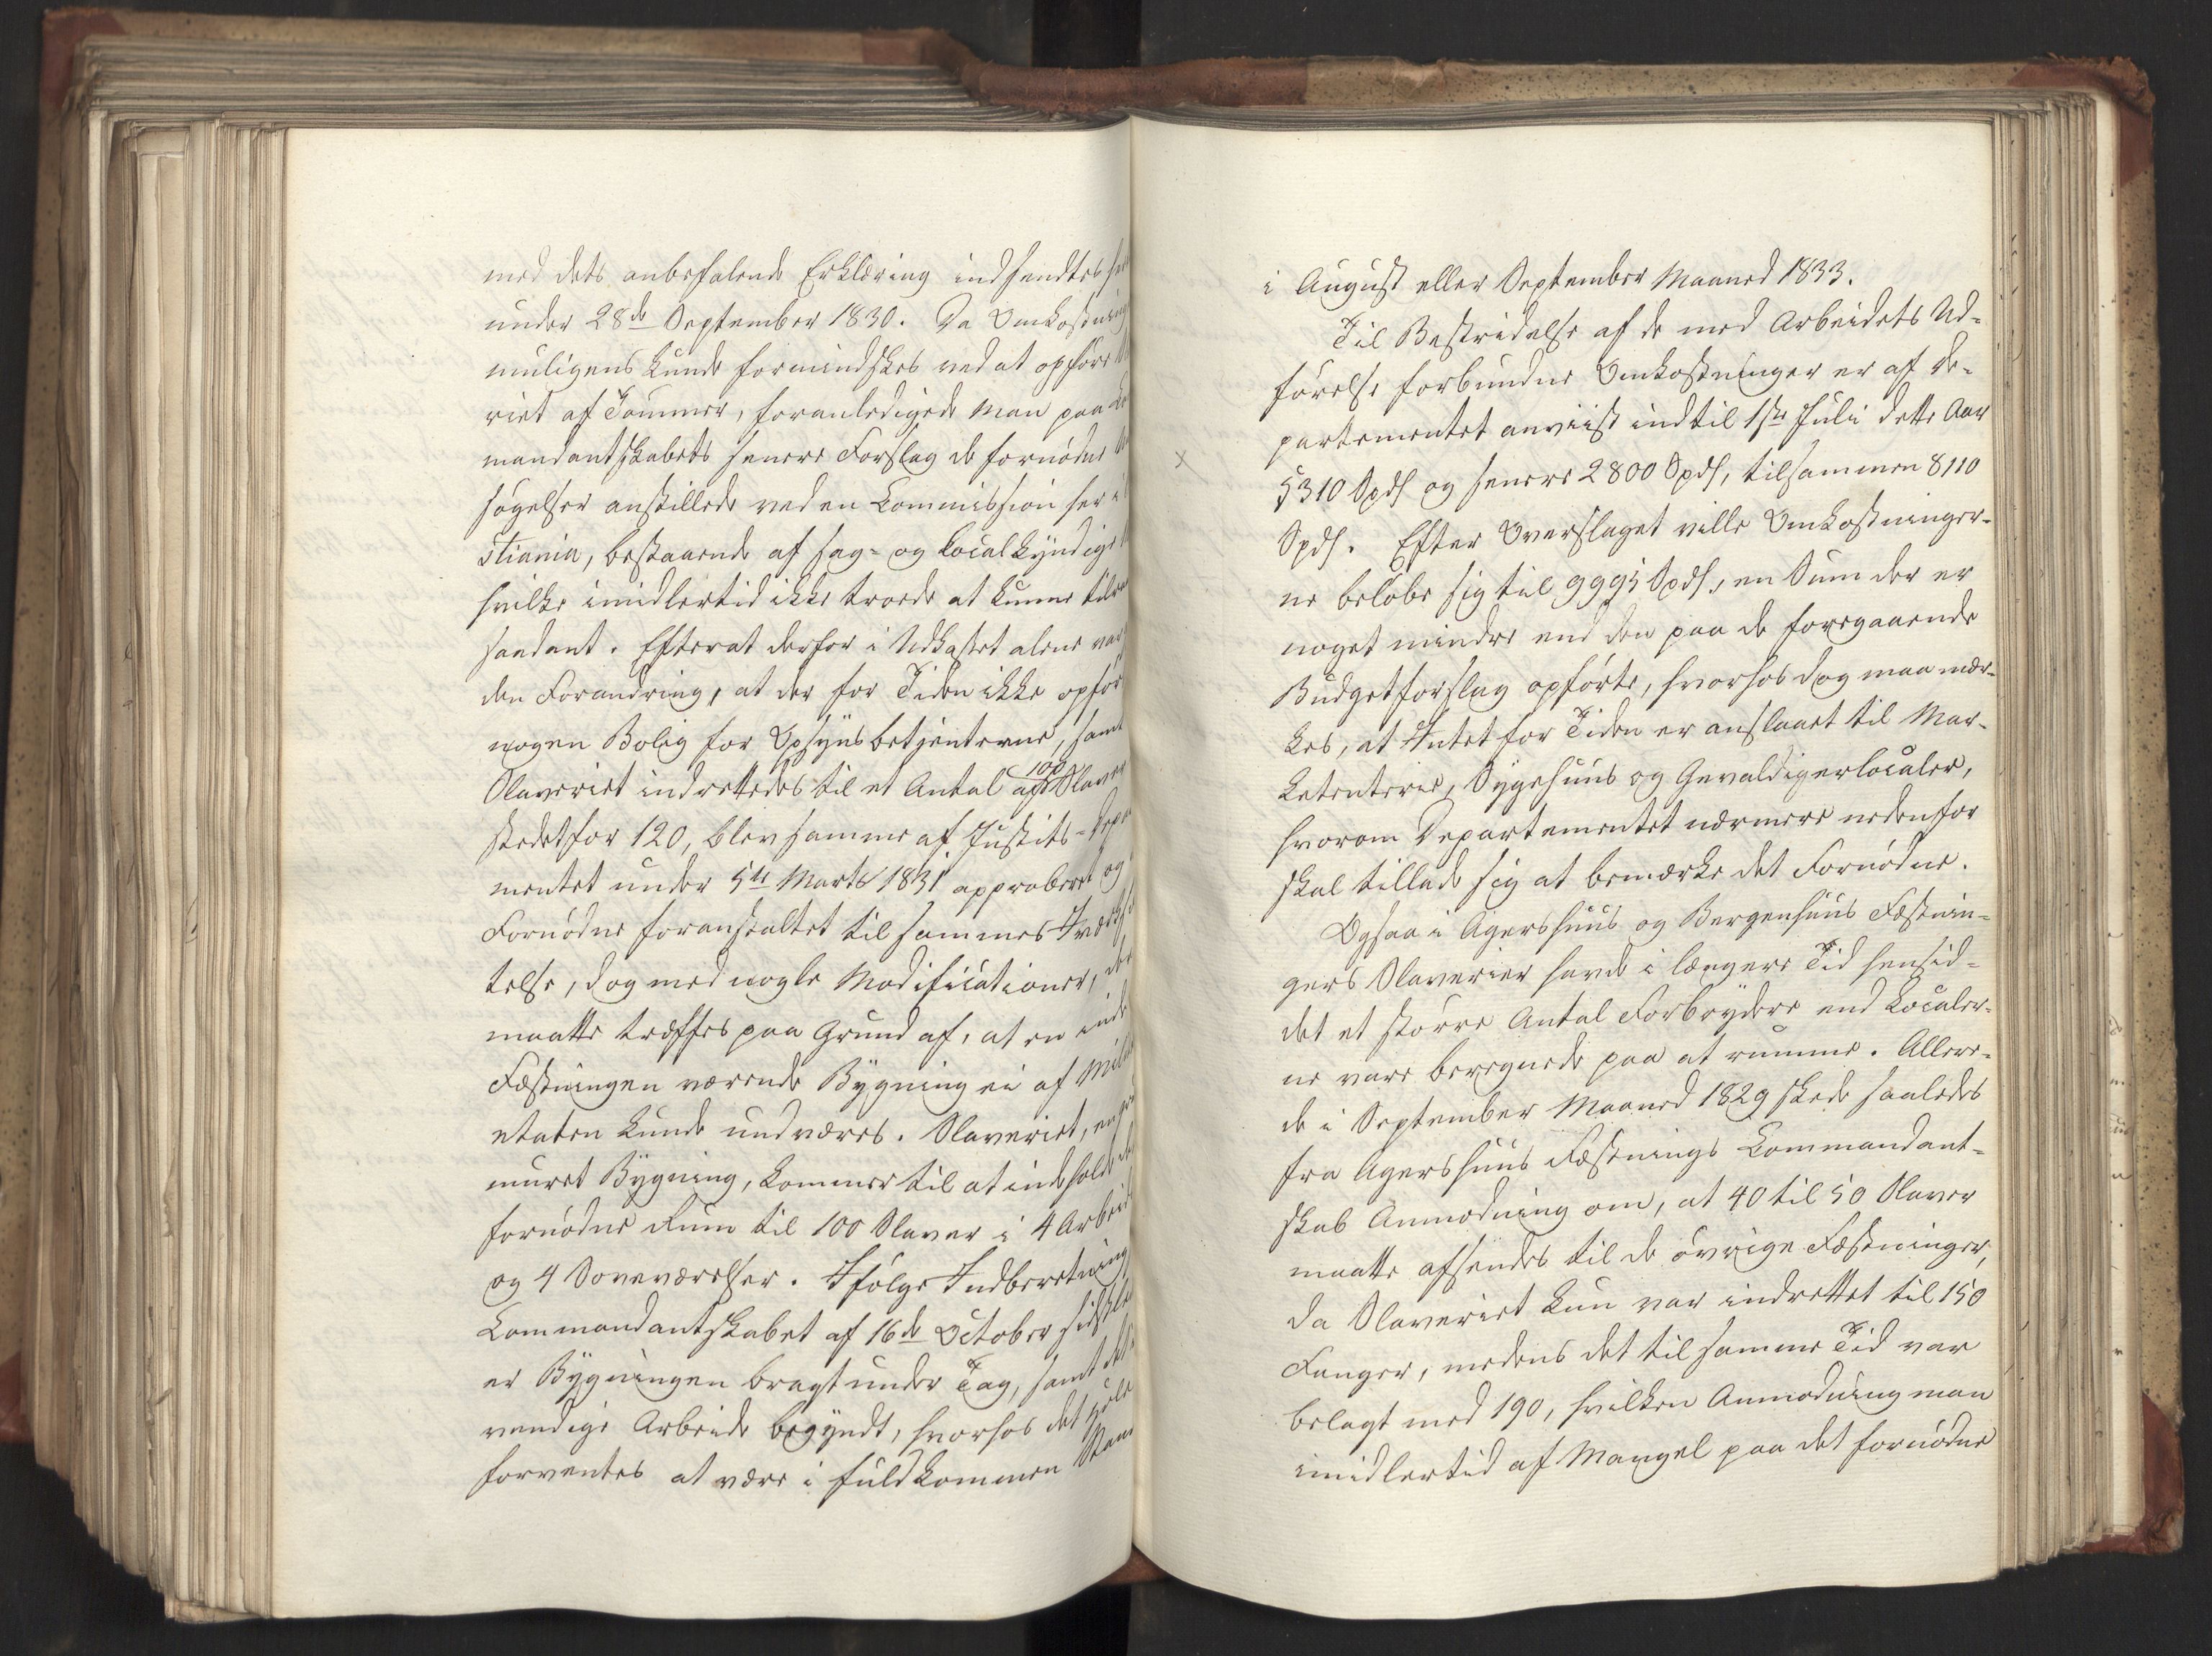 med dets anbefalende Erklæring indsendtes
under 28de September 1830. Da Omkostning
muligens kunde formindskes ved at opføre
riet af Tømmer, foranledigede man paa
mandantskabets senere Forslag de fornødne
søgelser anstillede ved en Commission her i
stiania, bestaaende af sag- og localkyndige
hvilke imidlertid ikke troede at kunne
saadant. Efterat derfor i Udkastet alene var
den Forandring, at der for Tiden ikke opfør
nogen Bolig for Opsynsbetjenterne, samt
Slaveriet indrettedes til et Antal af 100 Slaver
stedetfor 120, blev samme af Justits-Depar
mentet under 5te Marts 1831 approberet og
Fornødne foranstaltet til sammes Iværks
telse, dog med nogle Modificationer, der
maatte træffes paa Grund af, at en inde
Fæstningen værende Bygning ei af Mil
etaten kunde undværes. Slaveriet, en
muret Bygning, kommer til at indeholde
fornødne Rum til 100 Slaver i 4 Arbeids
og 4 Soveværelser. Ifølge Indberetning
Commandantskabet af 16de October sidstle
er Bygningen bragt under Tag, samt det
vendige Arbeide begyndt, hvorhos det Hele
forventes at være i fuldkommen Stand
i August eller September Maaned 1833.
Til Bestridelse af de med Arbeidets Ud-
førelse forbundne Omkostninger er af De-
partementet anviist indtil 1ste Juli dette Aar
5310 Spds og senere 2800 Spds, tilsammen 8110
Spds. Efter Overslaget ville Omkostninger-
ne beløbe sig til 9995 Spds., en Sum der er
noget mindre end den paa de foregaaende
Budgetforslag opførte, hvorhos dog maa mær-
kes, at Intet for Tiden er anslaaet til Mar-
ketenterie, Sygehuus og Gevaldigerlocaler,
hvorom Departementet nærmere nedenfor
skal tillade sig at bemærke det Fornødne.
Ogsaa i Agershuus og Bergenhuus Fæstnin-
gers Slaverier havde i længere Tid hensid-
det et større Antal Forbrydere end Localer-
ne vare beregnede paa at rumme. Allere-
de i September Maaned 1829 skede saaledes
fra Agershuus Fæstnings Commandant-
skab Anmodning om, at 40 til 50 Slaver
maatte afsendes til de øvrige Fæstninger,
da Slaveriet kun var indrettet til 150
Fanger, medens det til samme Tid var
belagt med 190, hvilken Anmodning man
imidlertid af Mangel paa det fornødne